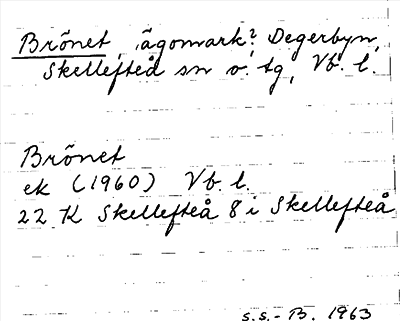 Brönet, ägomark?, Degerbyn,
Skellefteå sn o. tg, Vb. l.
Brönet
ek (1960) Vb. l.
22 K Skellefteå 8 i Skellefteå
S.S.-B. 1963